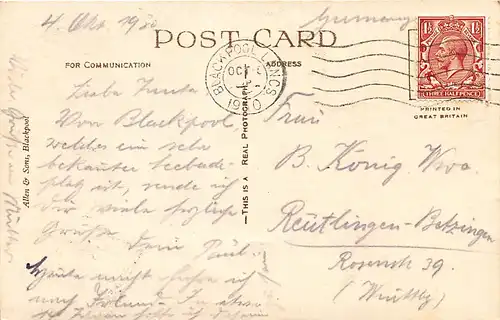 4. Okt. 1930
Germany
POST CARD
FOR COMMUNICATION
ADDRESS
BLACKPOOL LANCS.
OCT
19 0
1½
THREE HALFPENCE
PRINTED IN
GREAT BRITAIN
Allen & Sons, Blackpool
—THIS IS A REAL PHOTOGRAPH—
Liebe
Von Blackpool,
welches ein sehr
bekannter Seebade-
platz ist, sende ich
Dir viele herzliche
Grüße Dein Paul.
Heute fahre ich
nach
Frau
B. König Wwe.
Reutlingen-Betzingen
Rosenstr. 39
(Württbg)